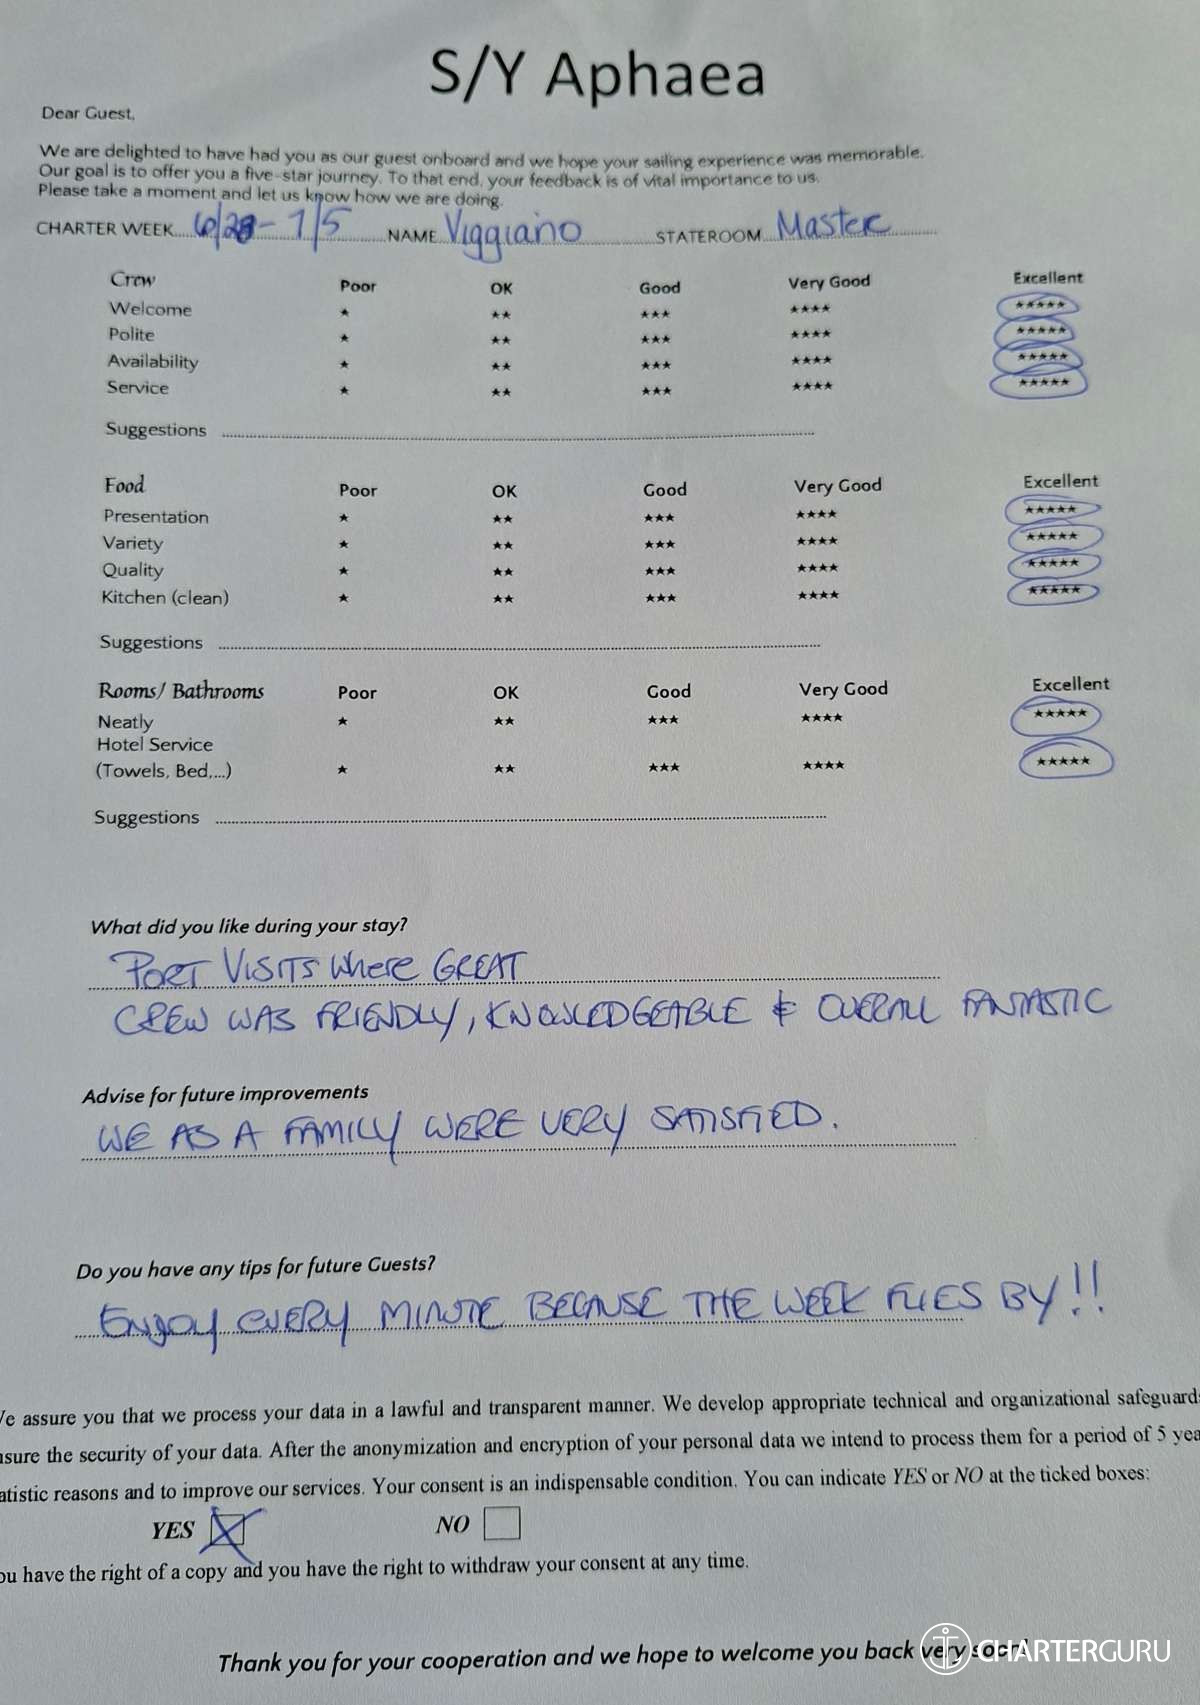 S/Y Aphaea
Dear Guest,
We are delighted to have had you as our guest onboard and we hope your sailing experience was memorable.
Our goal is to offer you a five-star journey. To that end, your feedback is of vital importance to us.
Please take a moment and let us know how we are doing.
CHARTER WEEK 6/28-7/5 NAME Viggiano STATEROOM Master
Crew Poor OK Good Very Good Excellent
Welcome ★ ★★ ★★★ ★★★★ ★★★★★
Polite ★ ★★ ★★★ ★★★★ ★★★★★
Availability ★ ★★ ★★★ ★★★★ ★★★★★
Service ★ ★★ ★★★ ★★★★ ★★★★★
Suggestions
Food Poor OK Good Very Good Excellent
Presentation ★ ★★ ★★★ ★★★★ ★★★★★
Variety ★ ★★ ★★★ ★★★★ ★★★★★
Quality ★ ★★ ★★★ ★★★★ ★★★★★
Kitchen (clean) ★ ★★ ★★★ ★★★★ ★★★★★
Suggestions
Rooms/ Bathrooms Poor OK Good Very Good Excellent
Neatly ★ ★★ ★★★ ★★★★ ★★★★★
Hotel Service
(Towels, Bed,...) ★ ★★ ★★★ ★★★★ ★★★★★
Suggestions
What did you like during your stay?
PORT VISITS WHERE GREAT
CREW WAS FRIENDLY, KNOWLEDGEABLE & OVERALL FANTASTIC
Advise for future improvements
WE AS A FAMILY WERE VERY SATISFIED.
Do you have any tips for future Guests?
ENJOY EVERY MINUTE BECAUSE THE WEEK FLIES BY!!
We assure you that we process your data in a lawful and transparent manner. We develop appropriate technical and organizational safeguards
nsure the security of your data. After the anonymization and encryption of your personal data we intend to process them for a period of 5 yea
atistic reasons and to improve our services. Your consent is an indispensable condition. You can indicate YES or NO at the ticked boxes:
YES NO
ou have the right of a copy and you have the right to withdraw your consent at any time.
Thank you for your cooperation and we hope to welcome you back very soon!
CHARTERGURU